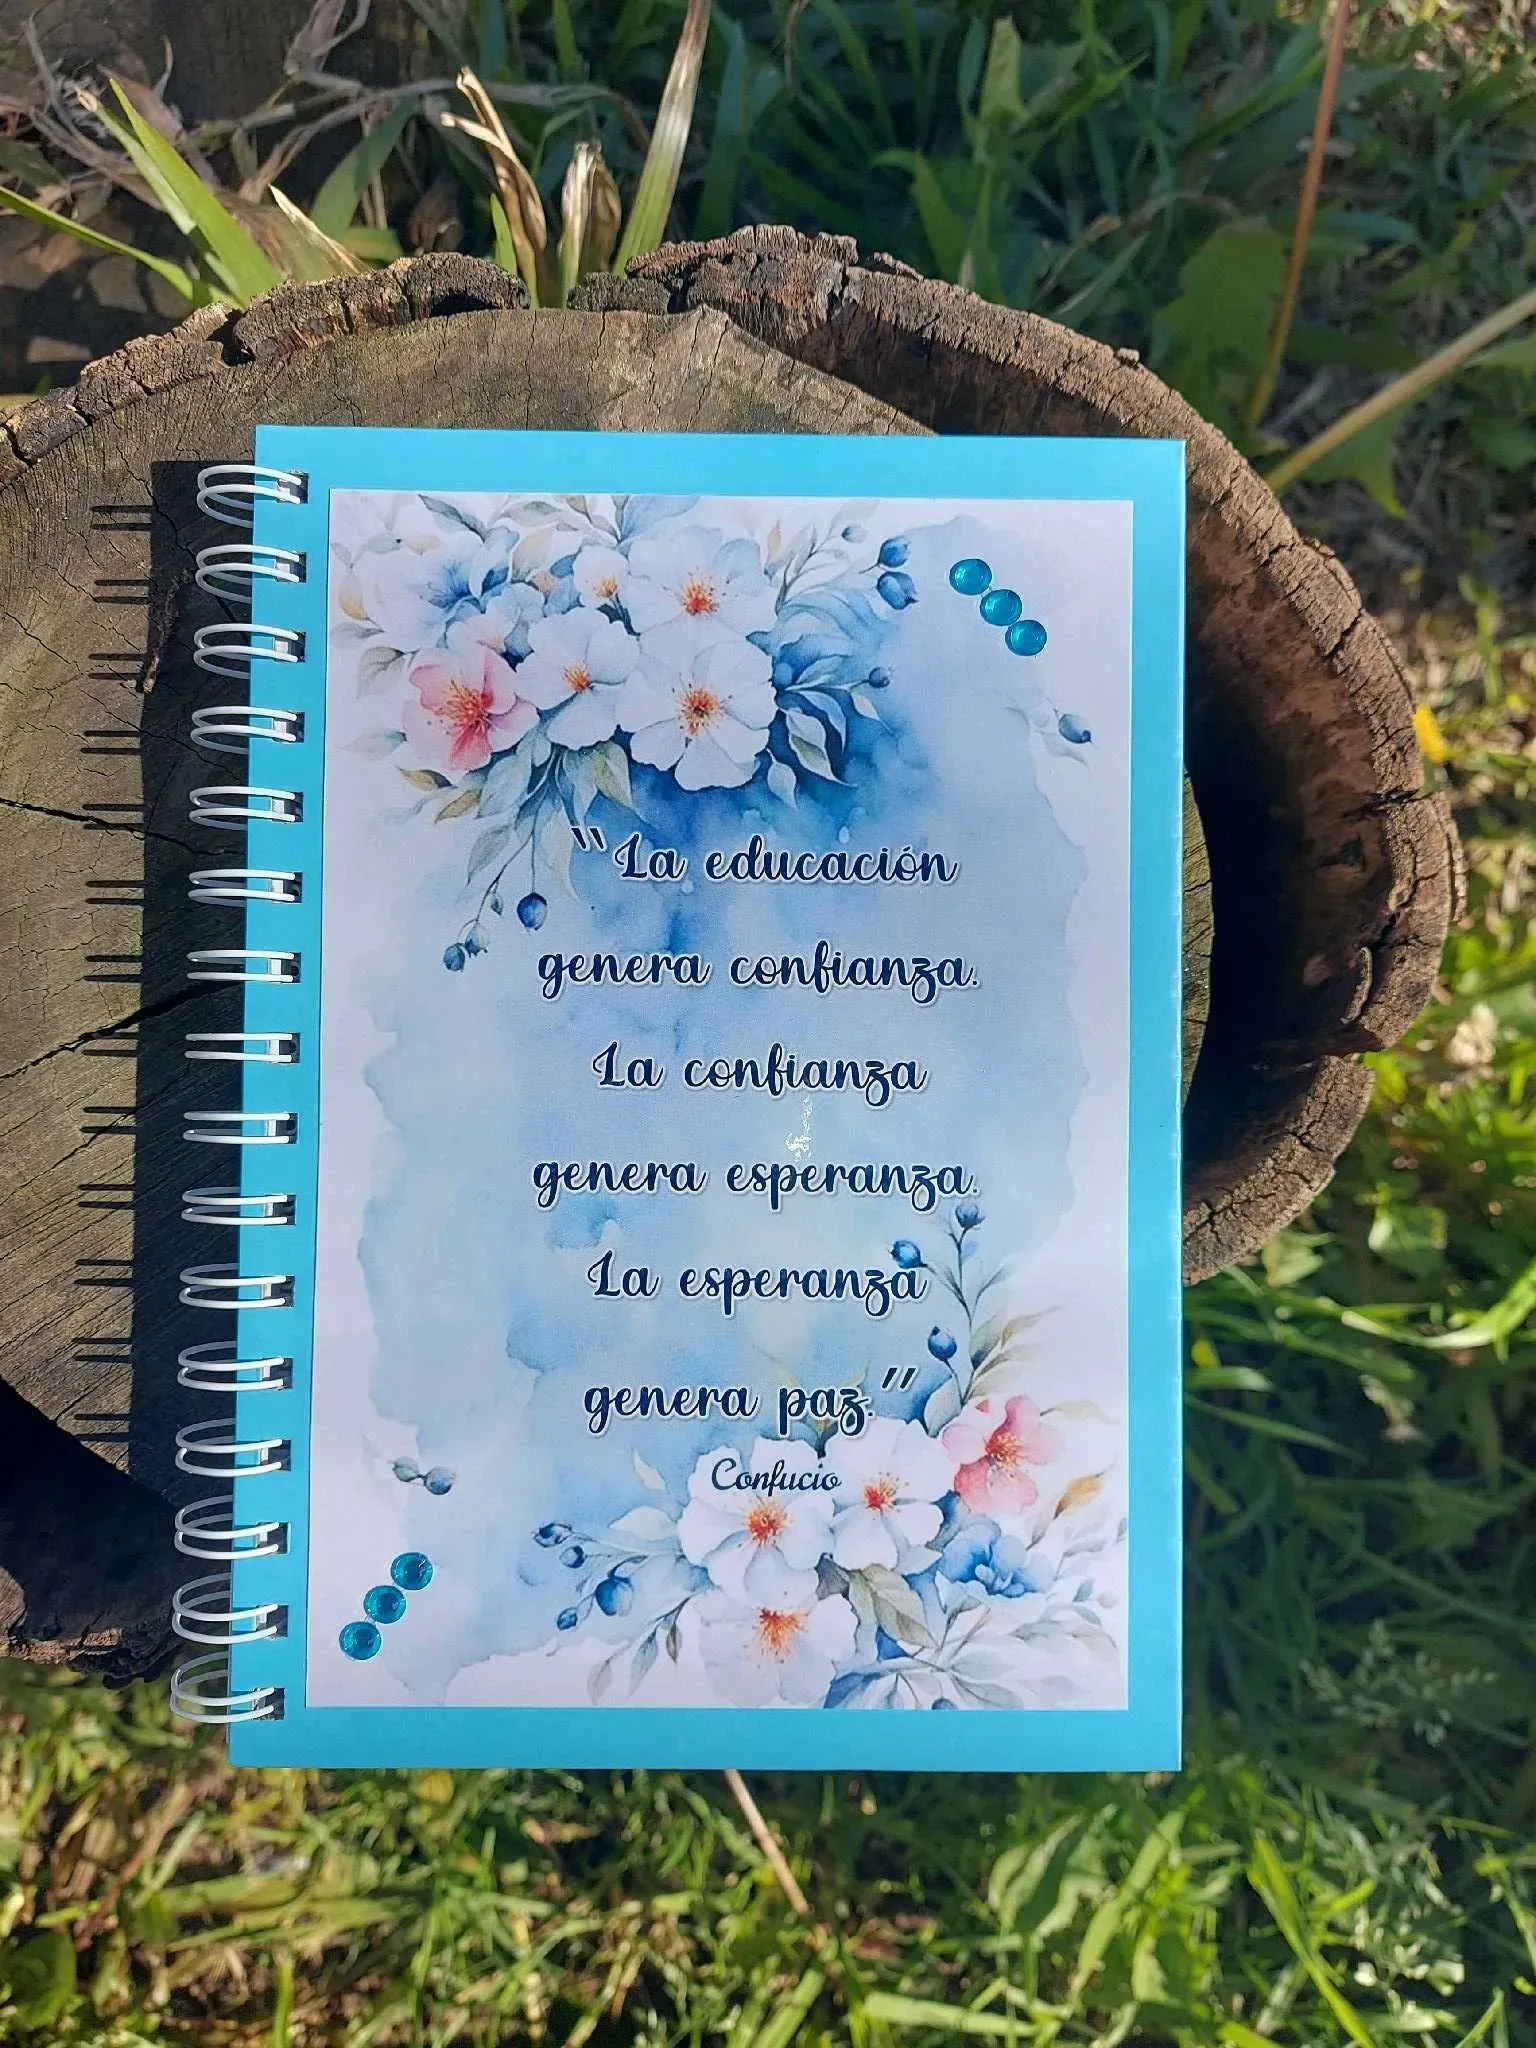 "La educación
genera confianza.
La confianza
genera esperanza.
La esperanza
genera paz."
Confucio